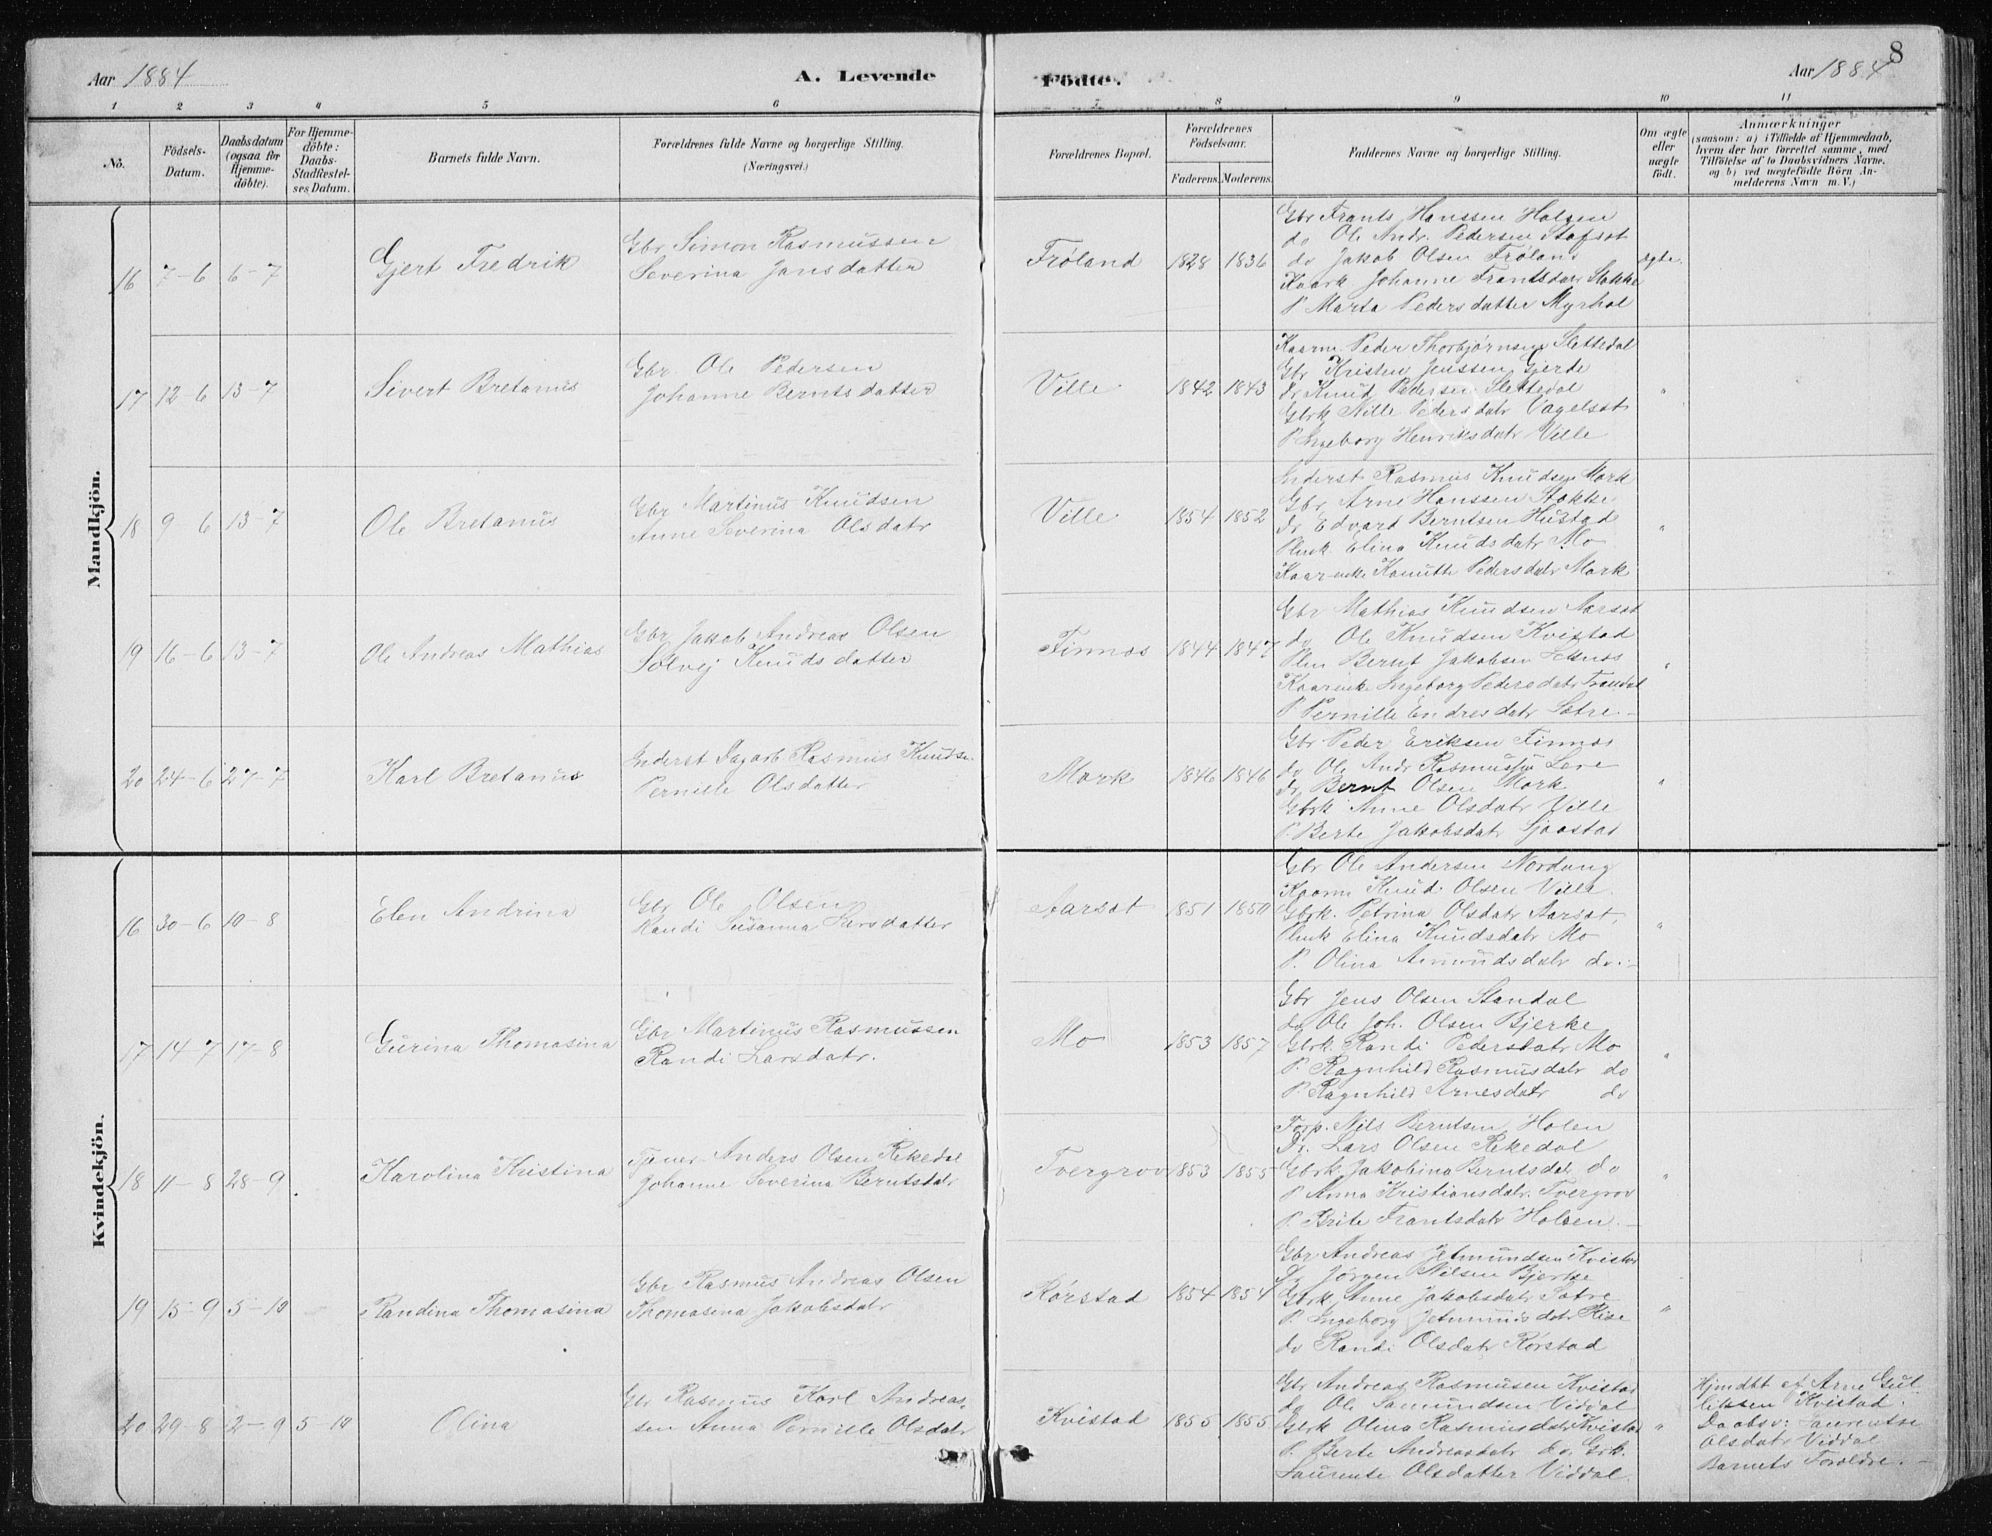 8
Aar 1884
A. Levende
Födte.
Aar 1884
1 2 3 4 5 6 7 8 9 10 11
No.
Födsels-
Datum.
Daabsdatum
(ogsaa for
Hjemme-
döbte).
For Hjemme-
döbte:
Daabs-
Stadfæstel-
ses Datum.
Barnets fulde Navn.
Forældrenes fulde Navne og borgerlige Stilling.
(Næringsvei.)
Forældrenes Bopæl.
Forældrenes
Födselsaar.
Faderens. Moderens.
Faddernes Navne og borgerlige Stilling.
Om ægte
eller
uægte
födt.
Anmærkninger
(saasom: a) i Tilfælde af Hjemmedaab,
hvem der har forrettet samme, med
Tilföielse af to Daabsvidners Navne.
og b) ved uægtefödte Börn An-
melderens Navn m. V.)
Mandkjön.
16 7-6 6-7
Gjert Fredrik
Gbr Simon Rasmussen
Severina Jansdatter
Frøland 1828 1836
Gbr Frants Hanssen Holsen
do Ole Andr. Pedersen
do Jakob Olsen Frøland
Johanne Frantsdatr Stokke
P. Marta Pedersdatter Myrhol
ægte.
17 12-6 13-7
Sivert Bretanus
Gbr. Ole Pedersen
Johanne Berntsdatter
Ville 1842 1843
Peder Thorbjørnsen Slettedal
Gbr Kristen Jenssen Gjerde
Dr Knud Pedersen Slettedal
Gbrk Nille Pedersdatr
P. Ingeborg Henriksdatr Ville
"
18 9 6 13-7
Ole Bretanus
Gbr Martinus Knudsen
Anne Severina Olsdatr
Ville 1854 1852
Inderst Rasmus Knudsen Mork
Gbr Arne Hanssen Stokke
Dr Edvard Berntsen Hustad
Elina Knudsdatr Mo
Pedersdatr Mork
"
19 16-6 13-7
Ole Andreas Mathias
Gbr Jakob Andreas Olsen
Solvej Knudsdatter
Finnes 1844 1847
Gbr Mathias Knudsen Aarset
do Ole Knudsen Kvistad
Bernt Jakobsen
Ingeborg Pedersdatr
P. Pernille Endresdatr Sætre
"
20 24-6 27-7
Karl Bretanus
Inderst Dagarb. Rasmus Knudsen
Pernille Olsdatter
Mork 1846 1846
Gbr Peder Eriksen Finnes
do Ole Andr Rasmussen
Dr Bernt Olsen Mork
Gbrk Anne Olsdatr Ville
P. Berte Jakobsdatr Sjaastad
"
Kvindekjön.
16 30-6 10-8
Elen Andrina
Gbr Ole Olsen
Randi Susanna Larsdatter
Aarset 1851 1850
Gbr Ole Andersen Nordang
Knud Olsen Ville
Gbrk. Petrina Olsdatr Aarset
Elina Knudsdatr Mo
P. Olina Amundsdatr do.
"
17 14-7 17-8
Gurina Thomasina
Gbr Martinus Rasmussen
Randi Larsdatr.
Mo 1853 1857
Gbr Jens Olsen Standal
do Ole Joh. Olsen Bjerke
Gbrk. Randi Pedersdatr Mo
P. Ragnhild Rasmusdatr do
P. Ragnhild Arnesdatr do
"
18 11-8 28-9
Karolina Kristina
Tjener Anders Olsen Rekedal
Johanne Severina Berntsdatr
Tvergrov 1853 1855
Forp. Nils Berntsen Holen
Dr. Lars Olsen Rekedal
Gbrk Jakobina Berntsdatr do
P. Anna Kristiansdatr. Tvergrov
P. Brite Frantsdatr Holsen.
"
19 15-9 5-10
Randina Thomasina
Gbr Rasmus Andreas Olsen
Thomasina Jakobsdatr
Rørstad 1854 1854
Gbr Andreas Jetmundsen Kvistad
Dr Jørgen Nilsen Bjerke
Gbrk Anne Jakobsdatr Sætre
P. Ingeborg Jetmundsdatr Rise
do Randi Olsdatr Rørstad
"
20 29-8 2-9 5-10
Olina
Gbr Rasmus Karl Andreas-
sen Anna Pernille Olsdatr
Kvistad 1855 1855
Gbr Andreas Rasmusen Kvistad
do Ole Samundsen Viddal
Gbrk Olina Rasmusdatr Kvistad
P. Berte Andreasdatr do, Gbrk.
Laurentse Olsdatter Viddal.
"
Hjmdbt af Arne Gul
liksen Kvistad.
Daabsv: Laurentse
Olsdatr Viddal
Barnets Forældre.